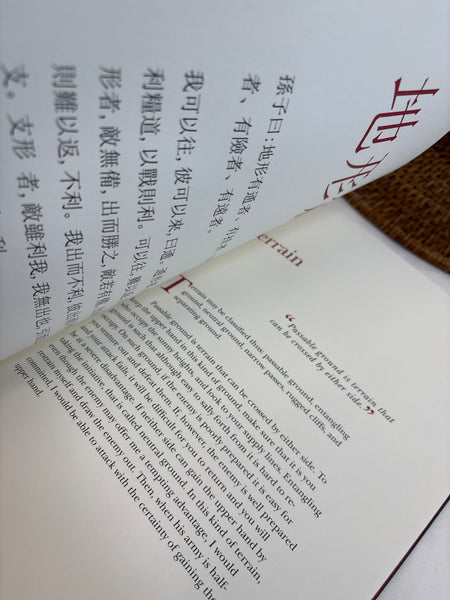 地形
孫子曰：地形有通者、有
者、有險者、有遠者。
我可以往，彼可以來，曰通。通
利糧道，以戰則利。可以往，難以
形者，敵無備，出而勝之，敵若有備
則難以返，不利。我出而不利，彼出
支。支形者，敵雖利我，我無出也，引
errain
“Passable ground is terrain that
can be crossed by either side.”
Terrain may be classified thus: passable, ground, entangling
ground, neutral ground, narrow passes, rugged cliffs, and
separating ground.
Passable ground is terrain that can be crossed by either side. To
keep the upper hand in this kind of ground, make sure that it is you
who occupy the sunny heights and look to your supply lines. Entangling
ground is such that although easy to sally forth from it is hard to re-
occupy. On such ground, if the enemy is poorly prepared it is easy for
you venture out and defeat them. If, however, the enemy is well prepared
and your attack fails, it will be difficult for you to return and you will
be at a severe disadvantage. If neither side can gain the upper hand by
taking the initiative, that is called neutral ground. In this kind of terrain,
even though the enemy may offer me a tempting advantage, I would
restrain myself and draw the enemy out. Then, when his army is half-
committed, I would be able to attack with the certainty of gaining the
upper hand.